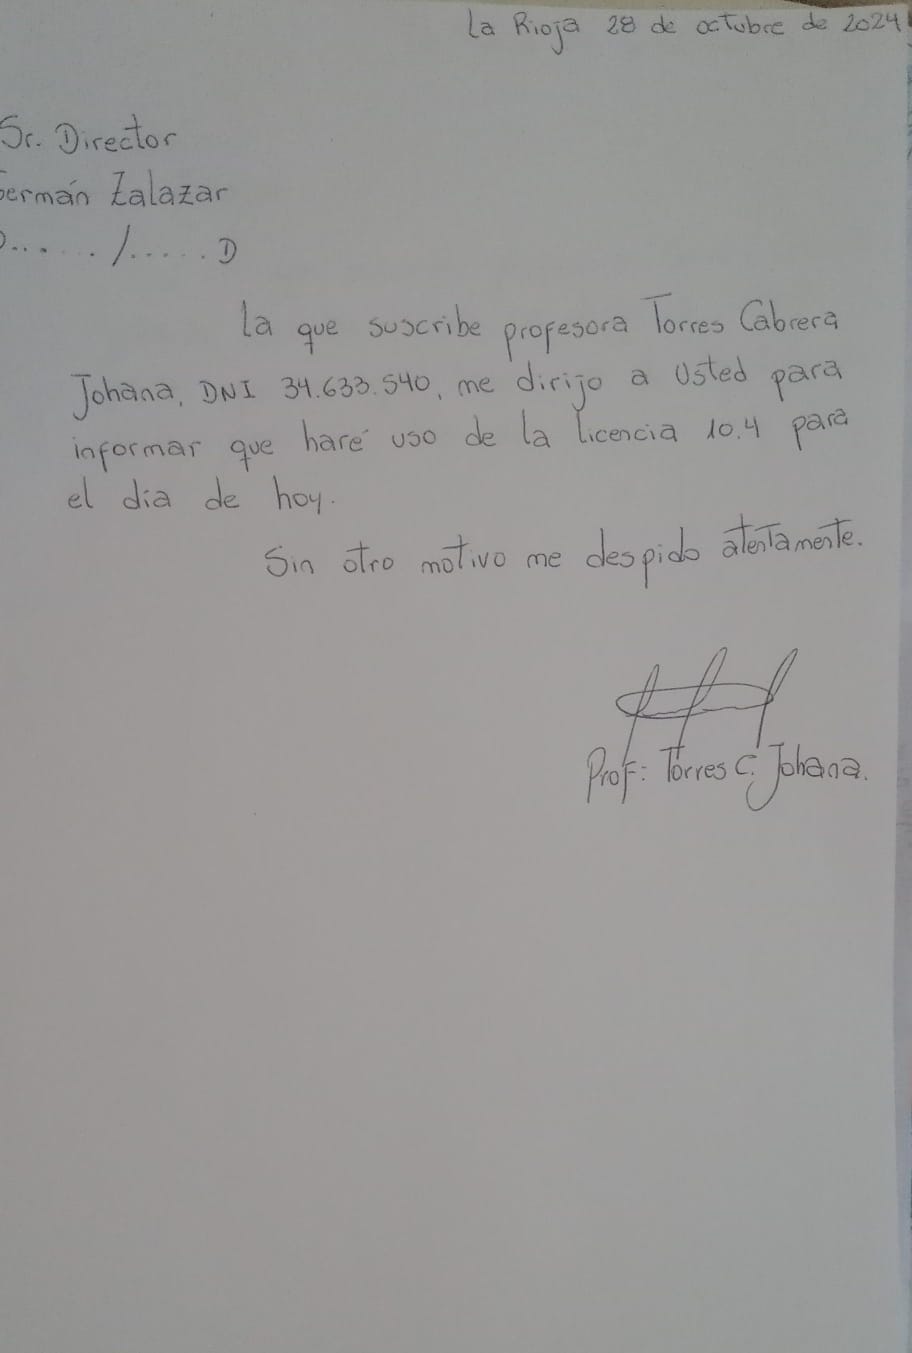 La Rioja 28 de octubre de 2024
Sr. Director
Germán Zalazar
D...... /..... D
La que suscribe profesora Torres Cabrera
Johana, DNI 34.633.540, me dirijo a Usted para
informar que haré uso de la licencia 10.4 para
el dia de hoy.
Sin otro motivo me despido atentamente.
Prof: Torres C. Johana.